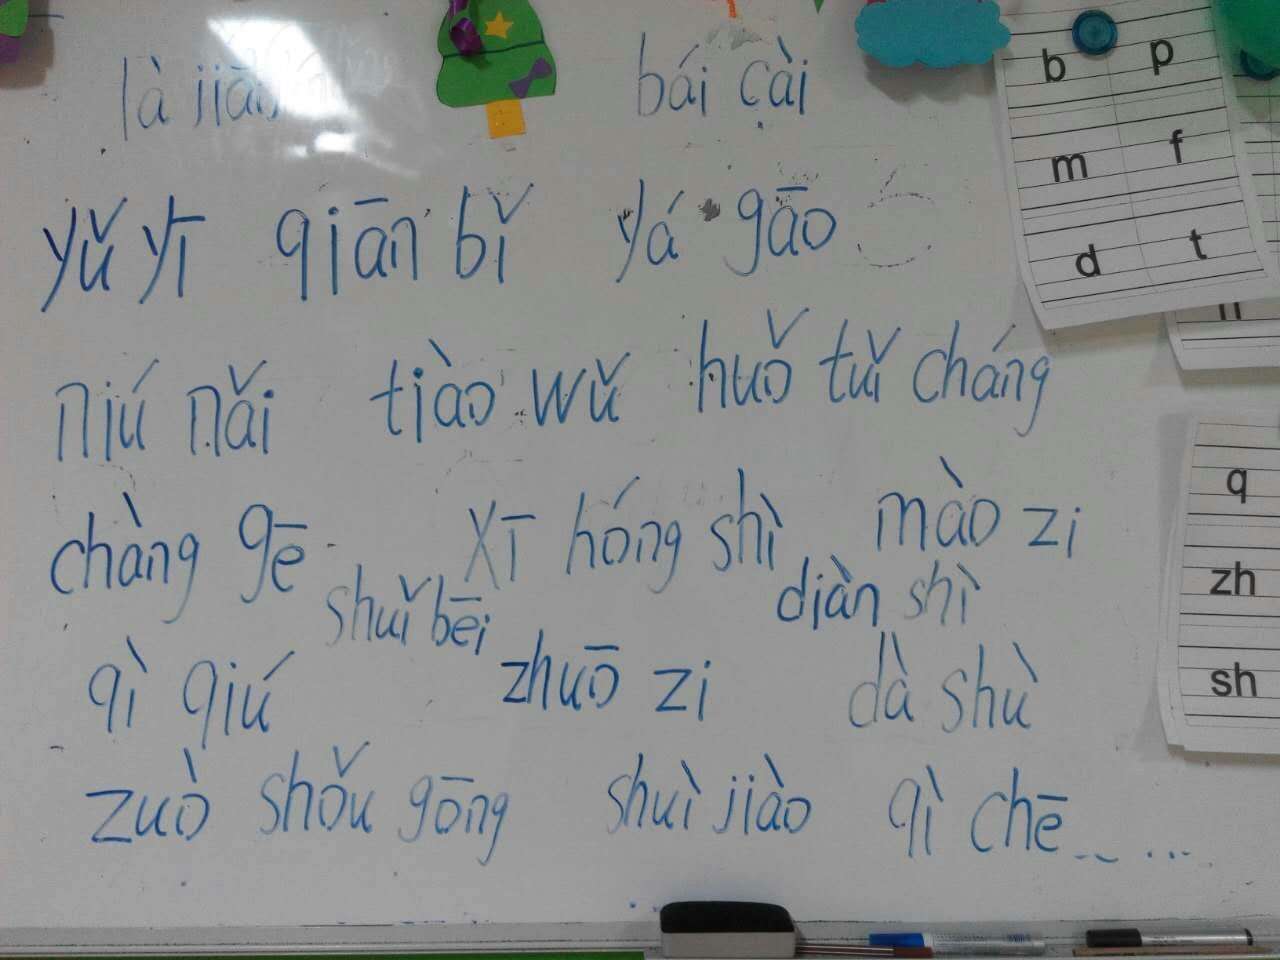 là jiāo bái cài
yǔ yī qiān bǐ yá gāo
niú nǎi tiào wǔ huǒ tuǐ cháng
chàng gē xī hóng shì mào zi
shuǐ bēi diàn shì
qì qiú zhuō zi dà shù
zuò shǒu gōng shuì jiào qì chē ......
b p
m f
d t
q
zh
sh